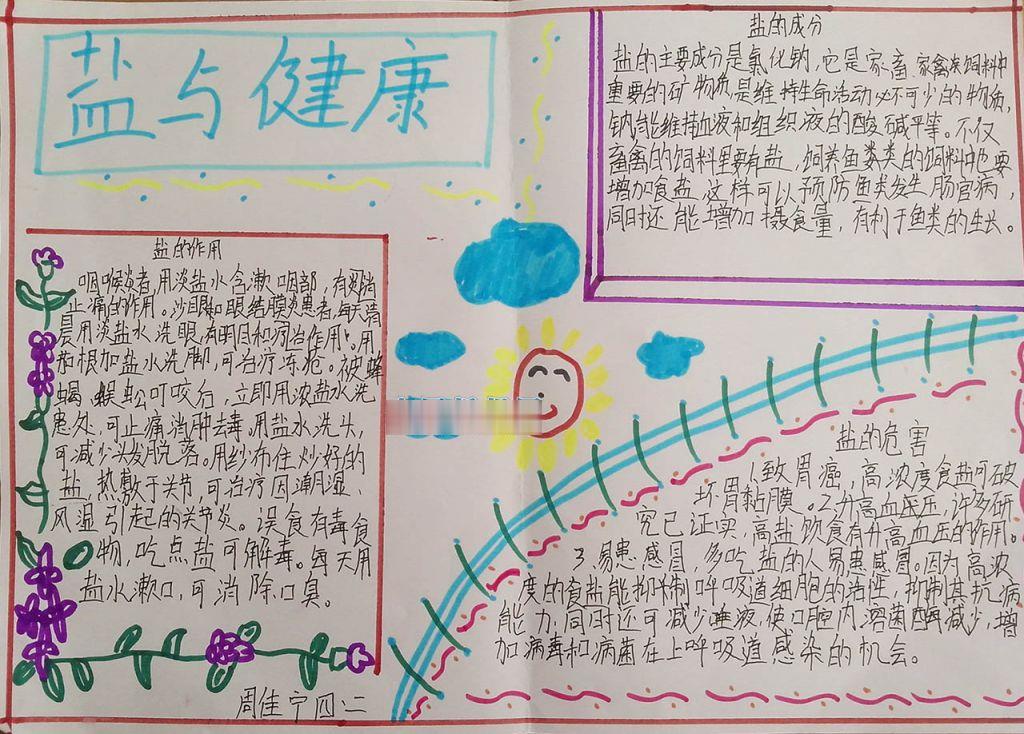 盐与健康
盐的作用
咽喉炎者,用淡盐水含漱咽部,有消
止痛的作用。沙眼和眼结膜炎患者,每天清
晨用淡盐水洗眼,有明目和疗治作用。用
茄根加盐水洗脚,可治疗冻疮。被蜂
蝎、蜈蚣叮咬后,立即用浓盐水洗
患处,可止痛消肿去毒。用盐水洗头,
可减少头发脱落。用纱布住炒好的
盐,热敷于关节,可治疗因潮湿、
风湿引起的关节炎。误食有毒食
物,吃点盐可解毒。每天用
盐水漱口,可消除口臭。
周佳宁四·二
盐的成分
盐的主要成分是氯化钠,它是家畜家禽类饲料中
重要的矿物质,是维持生命活动必不可少的物质,
钠能维持血液和组织液的酸碱平等。不仅
畜禽的饲料里要有盐,饲养鱼类类的饲料中也要
增加食盐,这样可以预防鱼类发生肠官病,
同时还能增加摄食量,有利于鱼类的生长。
盐的危害
1.致胃癌,高浓度食盐可破
坏胃黏膜。2.升高血压,许多研
究已证实,高盐饮食有升高血压的作用。
3.易患感冒,多吃盐的人易患感冒。因为高浓
度的食盐能抑制呼吸道细胞的活性,抑制其抗病
能力,同时还可减少唾液,使口腔内溶菌酶减少,增
加病毒和病菌在上呼吸道感染的机会。